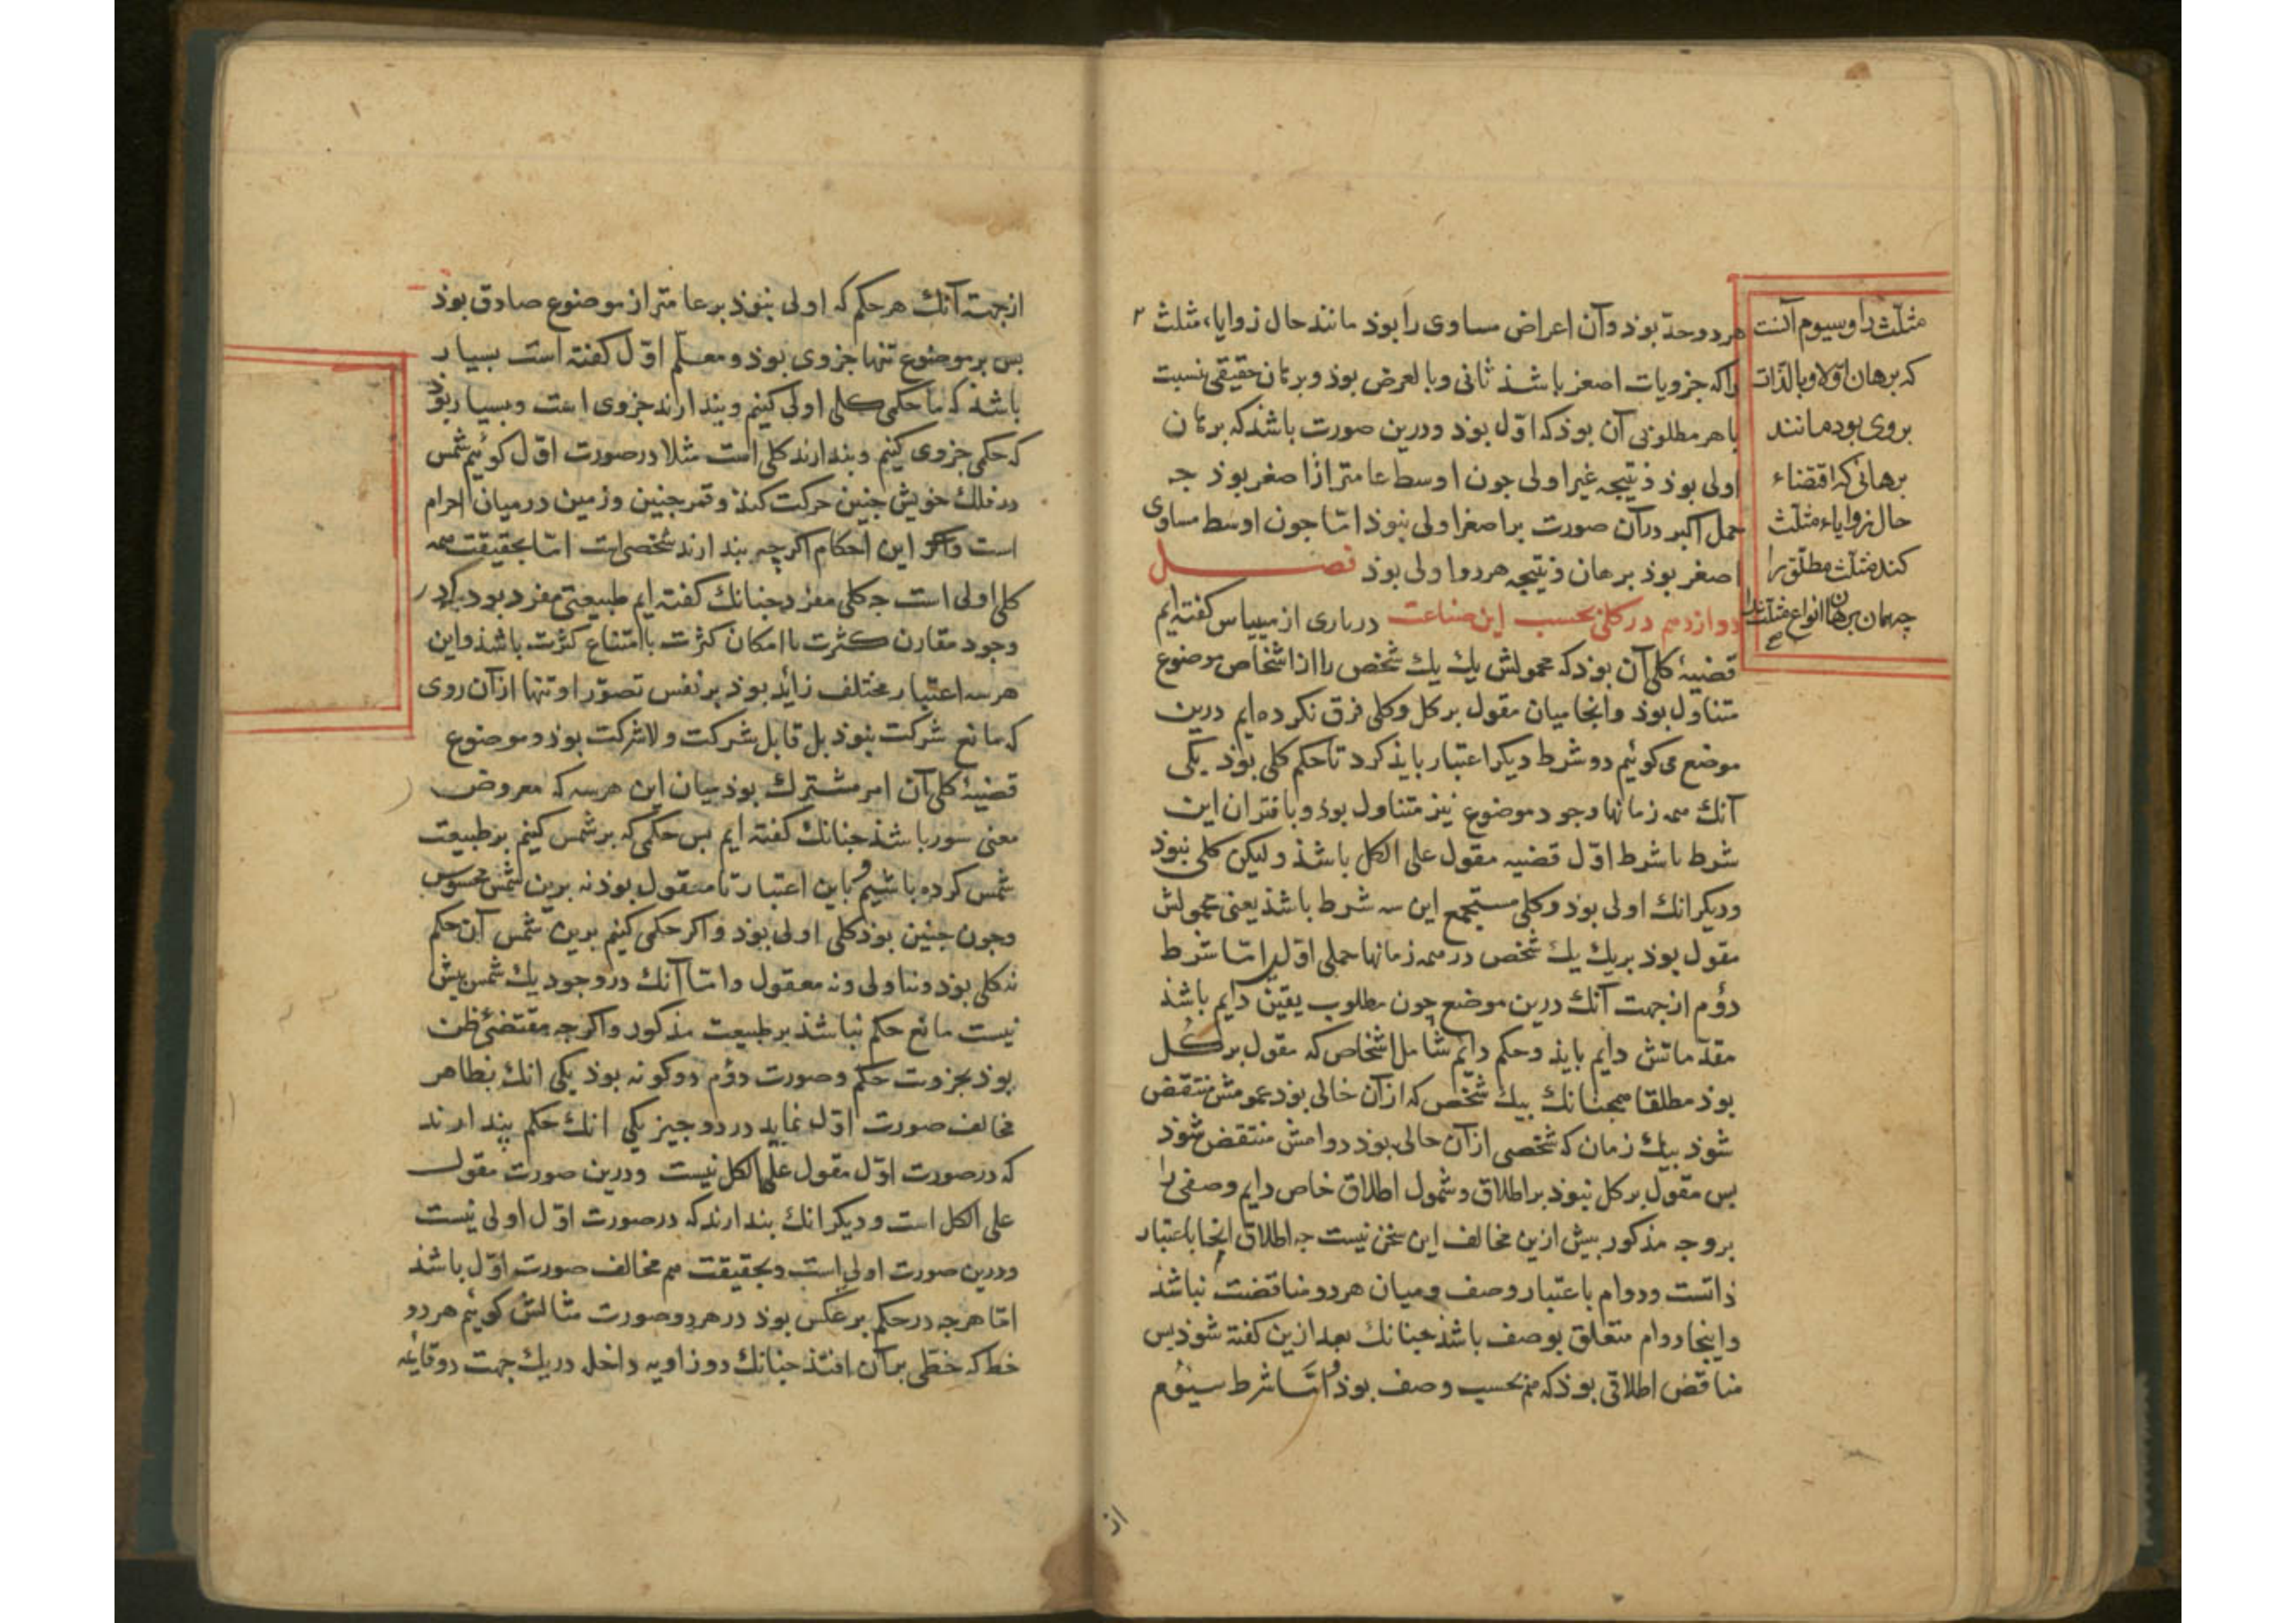 هر دو حدّ بوذ و آن اعراض مساوی را بوذ مانند حال زوایاء مثلث
واکه جزویات اصغر باشذ ثانی و بالعرض بوذ و برهان حقیقی نسبت
با هر مطلوبی آن بوذ که اوّل بوذ و درین صورت باشذ که برهان
اولی بوذ و نتیجه غیر اولی جون اوسط عامتر از اصغر بوذ جه
حمل اکبر در آن صورت بر اصغر اولی نبوذ امّا جون اوسط مساوی
اصغر بوذ برهان و نتیجه هر دو اولی بوذ فصل
دوازدهم در کلی بحسب این صناعت در باری ارمینیاس گفته‌ایم
قضیهٔ کلی آن بوذ که محمولش یك یك شخص را از اشخاص موضوع
متناول بوذ وانجا میان مقول بر کل و کلی فرق نکرده‌ایم درین
موضع می‌کوئیم دو شرط دیکر اعتبار بایذ کرد تا حکم کلی بوذ یکی
آنك همه زمانها وجود موضوع نیز متناول بوذ و باقتران این
شرط با شرط اوّل قضیه مقول علی الکل باشذ ولیکن کلی نبوذ
ودیکر انك اولی بوذ و کلی مستجمع این سه شرط باشذ یعنی محمولش
مقول بوذ بر یك یك شخص در همه زمانها حملی اوّلی امّا شرط
دؤم از جهت آنك درین موضع چون مطلوب یقین دایم باشذ
مقدّماتش دایم بایذ و حکم دایم شامل اشخاص که مقول بر کل
بوذ مطلقا همچنانك بیك شخص که از آن خالی بوذ عمومش منتقض
شوذ بیك زمان که شخصی از آن خالی بوذ دوامش منتقض شوذ
بس مقول بر کل نبوذ بر اطلاق و شمول اطلاق خاص دایم وصفی را
بروجه مذکور بیش ازین مخالف این سخن نیست جه اطلاق انجا باعتبار
ذاتست و دوام باعتبار وصف و میان هر دو مناقضت نباشذ
واینجا دوام متعلق بوصف باشذ جنانك بعد ازین کفته شوذ بس
مناقض اطلاقی بوذ که هم بحسب وصف بوذ و امّا شرط سیّوم
مثلّث را و سیوم آنست
که برهان اوّلا و بالذّات
بر وی بود مانند
برهانی که اقتضاء
حال زوایاء مثلّث
کند مثلّث مطلق را
چه همان برهان انواع مثلّث را
صح
از
از جهت آنك هر حکم که اولی نبوذ بر عامتر از موضوع صادق بوذ
بس بر موضوع تنها جزوی بوذ و معلّم اوّل کفته است بسیار
باشذ که ما حکمی کلی اولی کنیم و بندارند جزوی است و بسیار بوذ
که حکمی جزوی کنیم و بندارند کلی است مثلا در صورت اوّل کوئیم شمس
در فلك خویش جنین حرکت کنذ و قمر جنین و زمین در میان اجرام
است و این احکام اکرچه بندارند شخصی است امّا بحقیقت همه
کلی اولی است جه کلی مفرد جنانك کفته‌ایم طبیعتی مفرد بود که در
وجود مقارن کثرت یا امکان کثرت یا امتناع کثرت باشذ و این
هر سه اعتبار مختلف زاید بوذ بر نفس تصوّر او تنها از آن روی
که مانع شرکت نبوذ بل قابل شرکت و لا شرکت بوذ و موضوع
قضیهٔ کلی آن امر مشترك بوذ میان این هر سه که معروض
معنی سور باشذ جنانك کفته‌ایم بس حکمی که بر شمس کنیم بر طبیعت
شمس کرده باشیم و باین اعتبار تا معقول بوذ نه برین شمس محسوس
و جون جنین بوذ کلی اولی بوذ و اکر حکمی کنیم برین شمس آن حکم
نه کلی بوذ و نه اولی و نه معقول و امّا آنك در وجود یك شمس بیش
نیست مانع حکم نباشذ بر طبیعت مذکور و اکرجه مقتضیٔ ظن
بوذ بجزویت حکم و صورت دؤم دوکونه بوذ یکی انك بظاهر
مخالف صورت اوّل نماید در دو جیز یکی انك حکم بندارند
که در صورت اوّل مقول علی الکل نیست و درین صورت مقول
علی الکل است و دیکر انك بندارند که در صورت اوّل اولی نیست
و درین صورت اولی است و بحقیقت هم مخالف صورت اوّل باشذ
امّا هرجه در حکم بر عکس بوذ در هر دو صورت مثالش کوئیم هر دو
خط که خطّی بر آن افتذ جنانك دو زاویه داخل در یك جهت دو قایمه